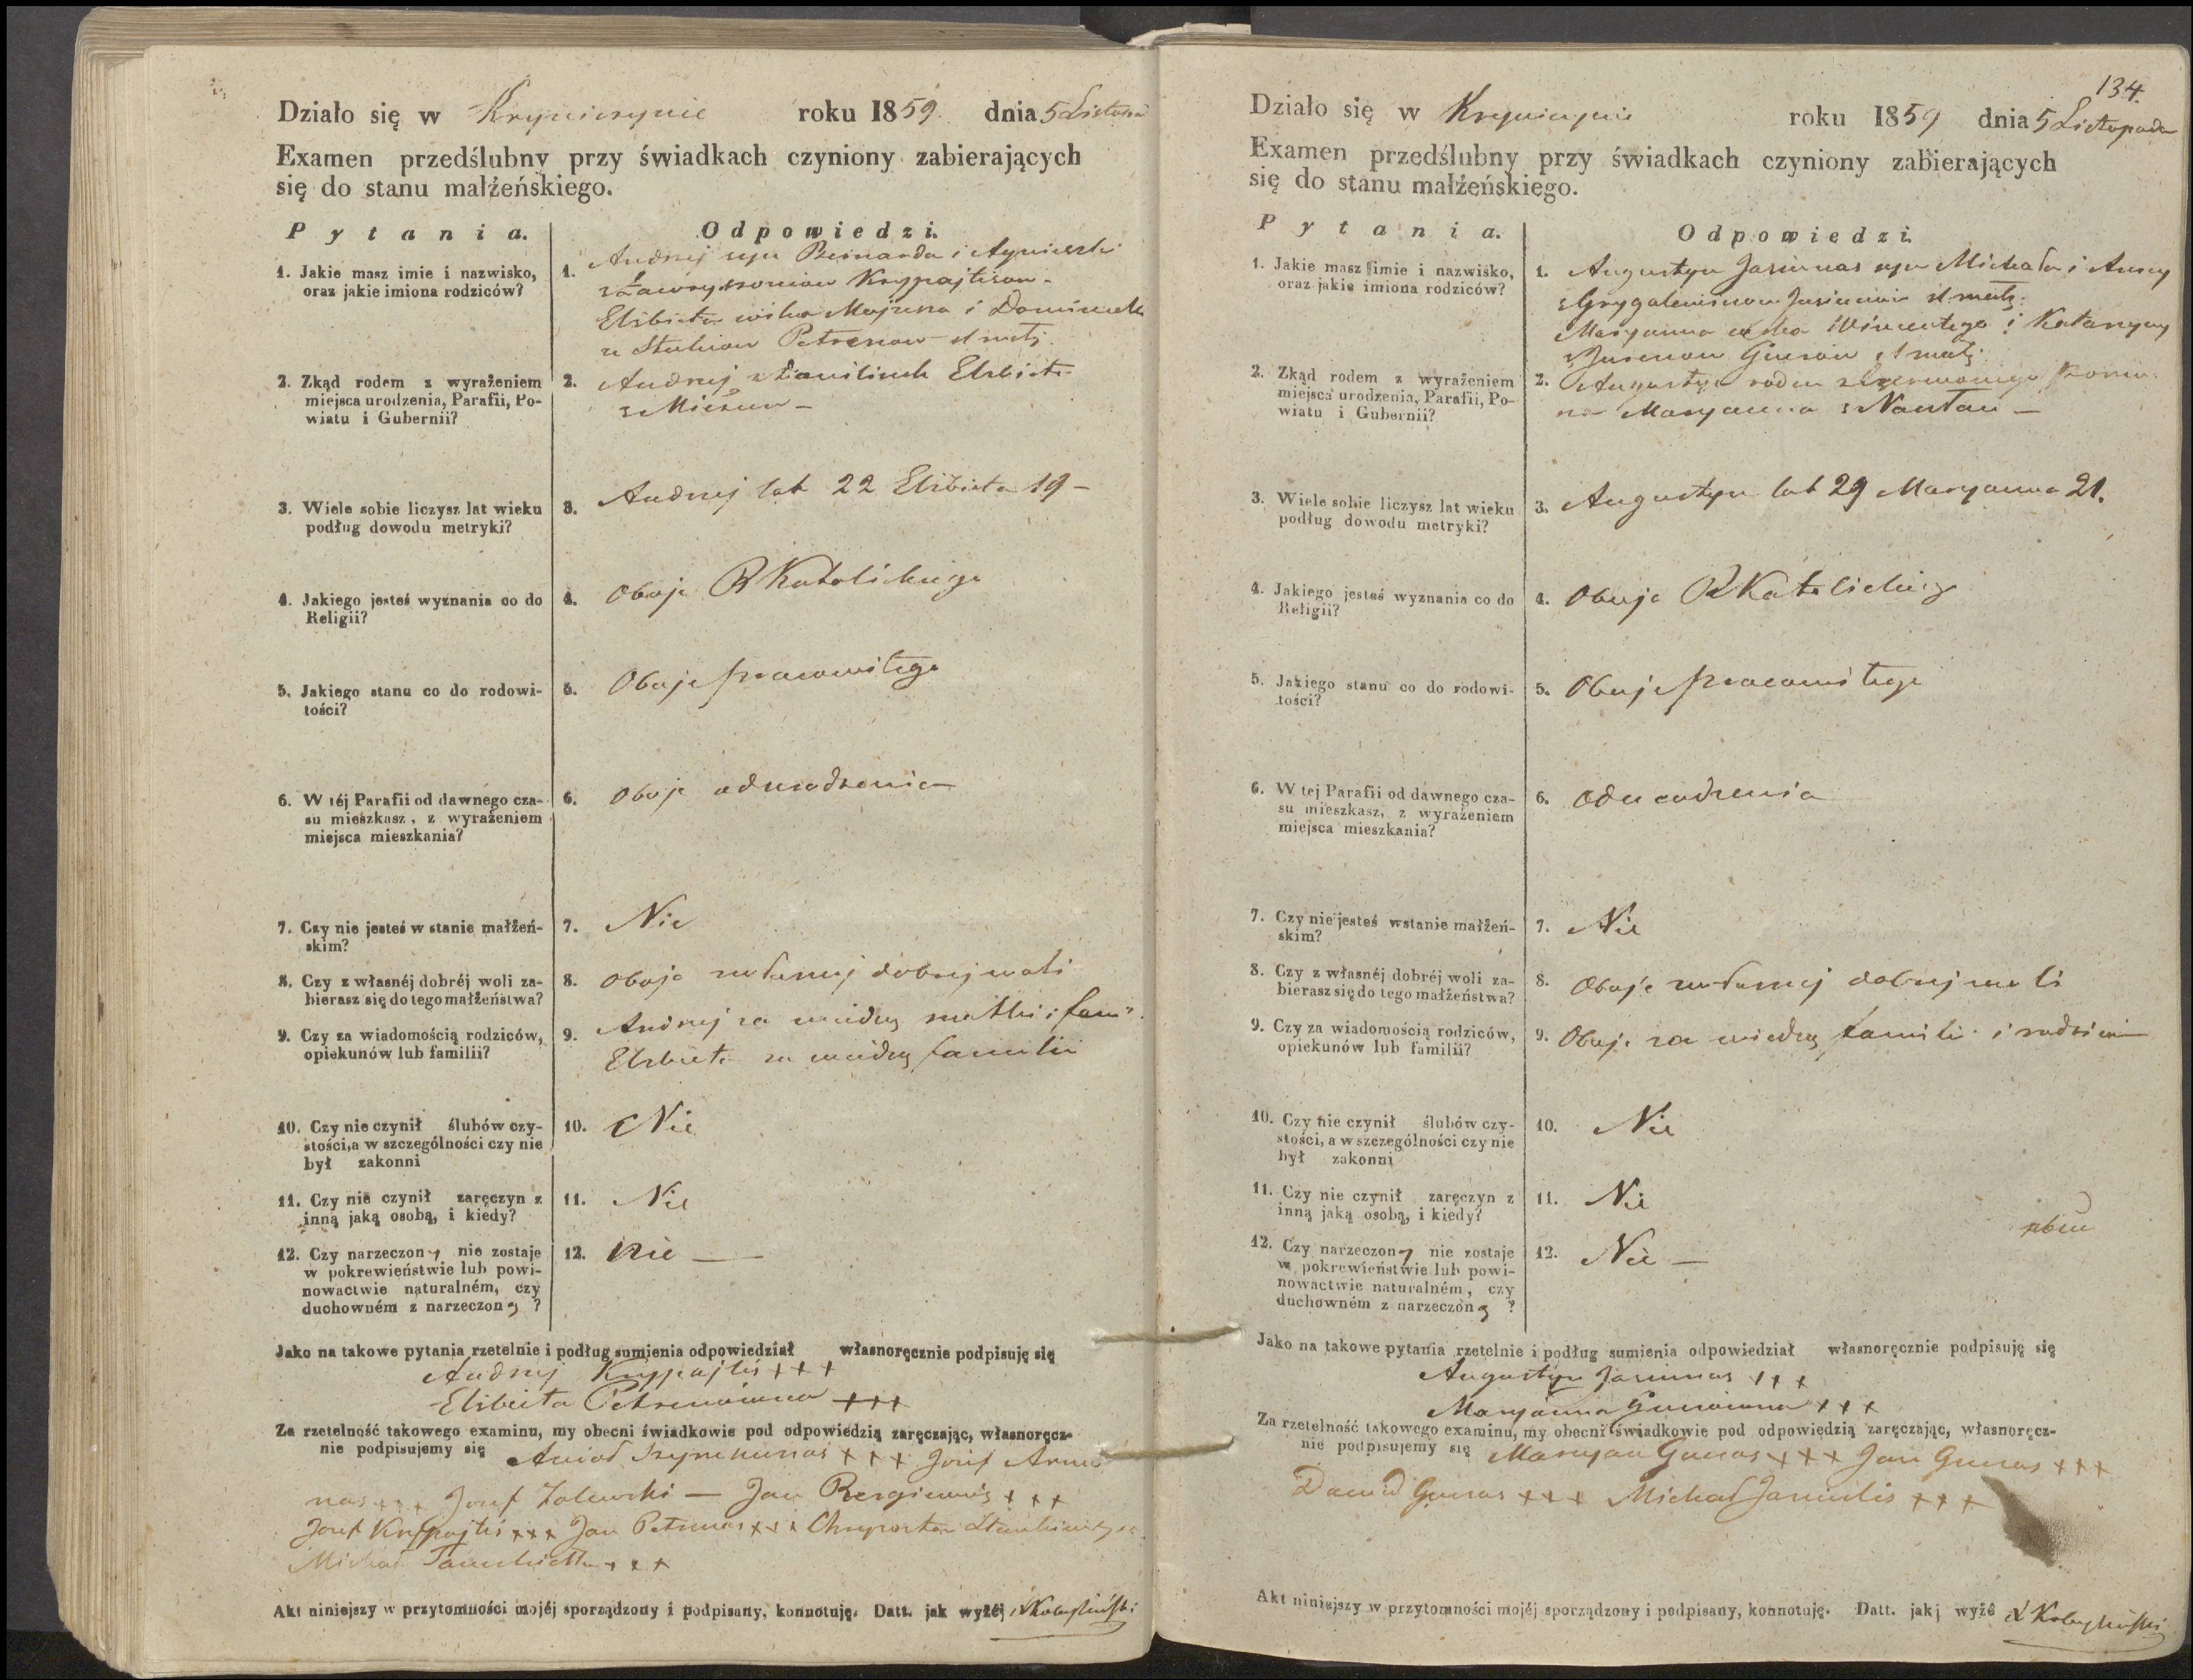 Działo się w Krynicynie roku 1859. dnia 5 Listopa
Examen przedślubny przy świadkach czyniony zabierających
się do stanu małżeńskiego.
Pytania. Odpowiedzi.
1. Jakie masz imie i nazwisko,
oraz jakie imiona rodziców?
1. Andrzej syn Bernarda i Agnieszki
Elżbieta córka i Dominik
Petrenow sl małż.
2. Zkąd rodem z wyrażeniem
miejsca urodzenia, Parafii, Po-
wiatu i Gubernii?
2. Andrzej z Elżbieta
z
3. Wiele sobie liczysz lat wieku
podług dowodu metryki?
3. Andrzej lat 22 Elżbieta 19 -
4. Jakiego jesteś wyznania co do
Religii?
4. Oboje R Katolickiego
5. Jakiego stanu co do rodowi-
tości?
5. Oboje pracowitego
6. W téj Parafii od dawnego cza-
su mieszkasz, z wyrażeniem
miejsca mieszkania?
6. Oboje od urodzenia
7. Czy nie jesteś w stanie małżeń-
skim?
7. Nie
8. Czy z własnéj dobréj woli za-
bierasz się do tego małżeństwa?
8. Oboje z własnej dobrej woli
9. Czy za wiadomością rodziców,
opiekunów lub familii?
9. Andrzej za wiedzą matki i fami
Elżbieta za wiedzą familii
10. Czy nie czynił ślubów czy-
stości, a w szczególności czy nie
był zakonni
10. Nie
11. Czy nie czynił zaręczyn z
inną jaką osobą, i kiedy?
11. Nie
12. Czy narzeczony nie zostaje
w pokrewieństwie lub powi-
nowactwie naturalném, czy
duchowném z narzeczoną ?
12. Nie —
Jako na takowe pytania rzetelnie i podług sumienia odpowiedział własnoręcznie podpisuję się
Andrzej Krypajtis +++
Elżbieta Petrenówna +++
Za rzetelność takowego examinu, my obecni świadkowie pod odpowiedzią zaręczając, własnoręcz-
nie podpisujemy się +++ Józef
nas +++ Józef Zalewski — Jan +++
Józef Krypajtis +++ Jan Petrenas +++
Michał +++
Akt niniejszy w przytomności mojéj sporządzony i podpisany, konnotuję. Datt. jak wyżéj
134.
Działo się w Krynicynie roku 1859 dnia 5 Listopada
Examen przedślubny przy świadkach czyniony zabierających
się do stanu małżeńskiego.
Pytania. Odpowiedzi.
1. Jakie masz imie i nazwisko,
oraz jakie imiona rodziców?
1. Augustyn Jasiunas syn Michała i Anny
sl małż.
Maryanna córka Wincentego i Katarzyny
sl małż.
2. Zkąd rodem z wyrażeniem
miejsca urodzenia, Parafii, Po-
wiatu i Gubernii?
2. Augustyn rodem z
Maryanna z
3. Wiele sobie liczysz lat wieku
podług dowodu metryki?
3. Augustyn lat 29 Maryanna 21.
4. Jakiego jesteś wyznania co do
Religii?
4. Oboje R Katolickieg
5. Jakiego stanu co do rodowi-
tości?
5. Oboje pracowitego
6. W tej Parafii od dawnego cza-
su mieszkasz, z wyrażeniem
miejsca mieszkania?
6. Od urodzenia
7. Czy nie jesteś w stanie małżeń-
skim?
7. Nie
8. Czy z własnéj dobréj woli za-
bierasz się do tego małżeństwa?
8. Oboje z własnej dobrej woli
9. Czy za wiadomością rodziców,
opiekunów lub familii?
9. Oboje za wiedzą familii i rodziców
10. Czy nie czynił ślubów czy-
stości, a w szczególności czy nie
był zakonni
10. Nie
11. Czy nie czynił zaręczyn z
inną jaką osobą, i kiedy?
11. Nie
12. Czy narzeczony nie zostaje
w pokrewieństwie lub powi-
nowactwie naturalném, czy
duchowném z narzeczoną ?
12. Nie —
Jako na takowe pytania rzetelnie i podług sumienia odpowiedział własnoręcznie podpisuję się
Augustyn Jasiunas +++
Maryanna +++
Za rzetelność takowego examinu, my obecni świadkowie pod odpowiedzią zaręczając, własnoręcz-
nie podpisujemy się Maryan +++ Jan +++
Dawid +++ Michał +++
Akt niniejszy w przytomności mojéj sporządzony i podpisany, konnotuję. Datt. jakj wyżé